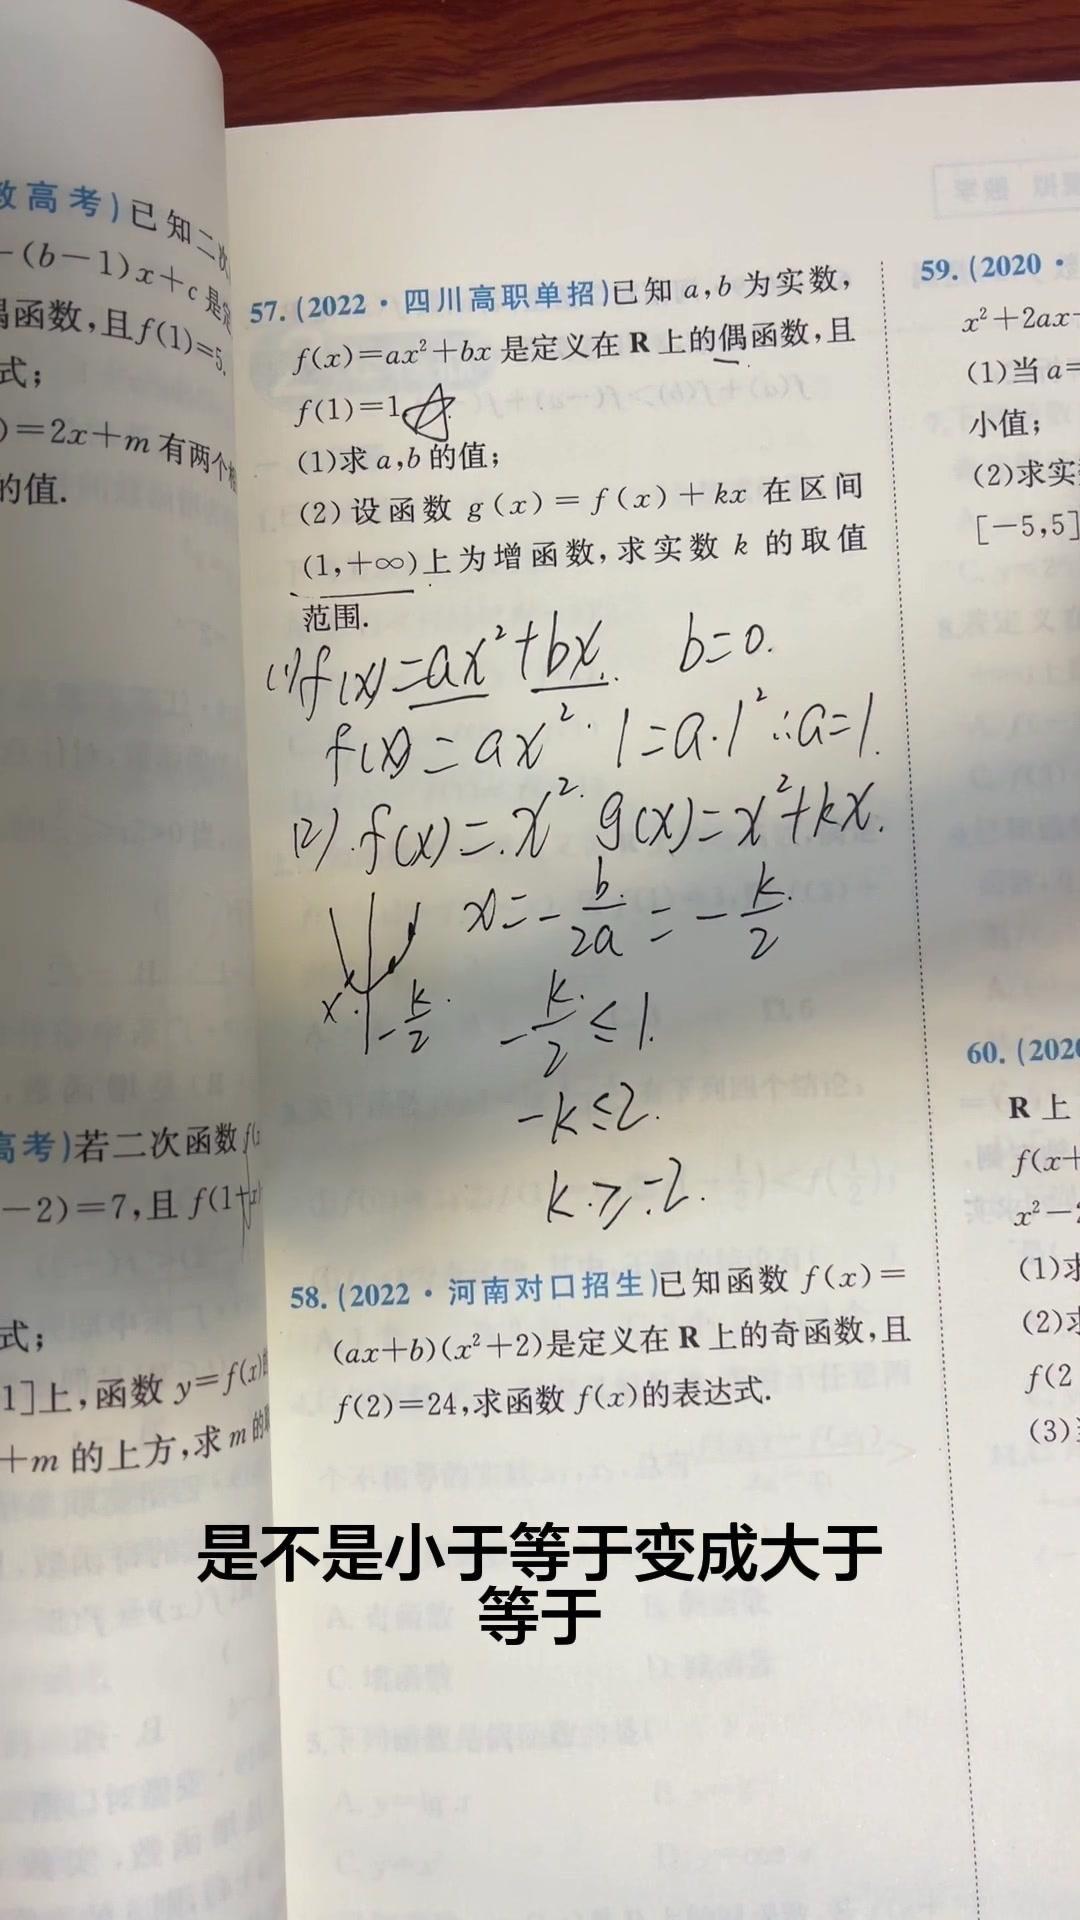 数高考)已知二次
-(b-1)x+c是定
偶函数,且f(1)=5.
式;
)=2x+m有两个相
的值.
高考)若二次函数f(x
-2)=7,且f(1+x)
式;
1]上,函数y=f(x)的
+m的上方,求m的取
57.(2022·四川高职单招)已知a,b为实数,
f(x)=ax²+bx是定义在R上的偶函数,且
f(1)=1.
(1)求a,b的值;
(2)设函数g(x)=f(x)+kx在区间
(1,+∞)上为增函数,求实数k的取值
范围.
(1)f(x)=ax²+bx. b=0.
f(x)=ax². 1=a·1² ∴a=1.
(2).f(x)=.x². g(x)=x²+kx.
x=-b/2a=-k/2
x. -k/2
-k/2≤1.
-k≤2.
k≥-2.
58.(2022·河南对口招生)已知函数f(x)=
(ax+b)(x²+2)是定义在R上的奇函数,且
f(2)=24,求函数f(x)的表达式.
59.(2020·
x²+2ax+
(1)当a=
小值;
(2)求实
[-5,5]
60.(2020
R上
f(x+
x²-2
(1)求
(2)求
f(2
(3)
是不是小于等于变成大于
等于